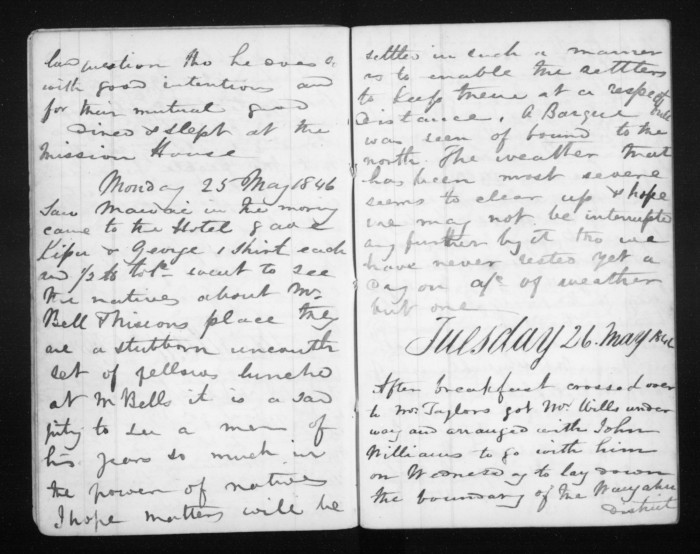 question tho he does
with good intentions and
for their mutual good
Dined & slept at the
Mission House
Monday 25 May 1846
Saw in the morng
came to the Hotel gave
Kipu & George 1 shirt each
and 1/2 lb tobc. went to see
the natives about Mr
Bell & place they
are a stubborn uncouth
set of fellows lunched
at Mr Bells it is a sad
pity to see a man of
his years so much in
the power of natives
I hope matters will be
settled in such a manner
as to enable the settlers
to keep them at a respectful
distance. A Barque
was seen of bound to the
north. The weather that
has been most severe
seems to clear up & hope
we may not be interrupted
any further by it tho we
have never rested yet a
day on a/c of weather
but one
Tuesday 26. May 1846
After breakfast crossed over
to Mr Taylors got Mr Wills under
way and arranged with John
Williams to go with him
on Wednesday to lay down
the boundary of the
District